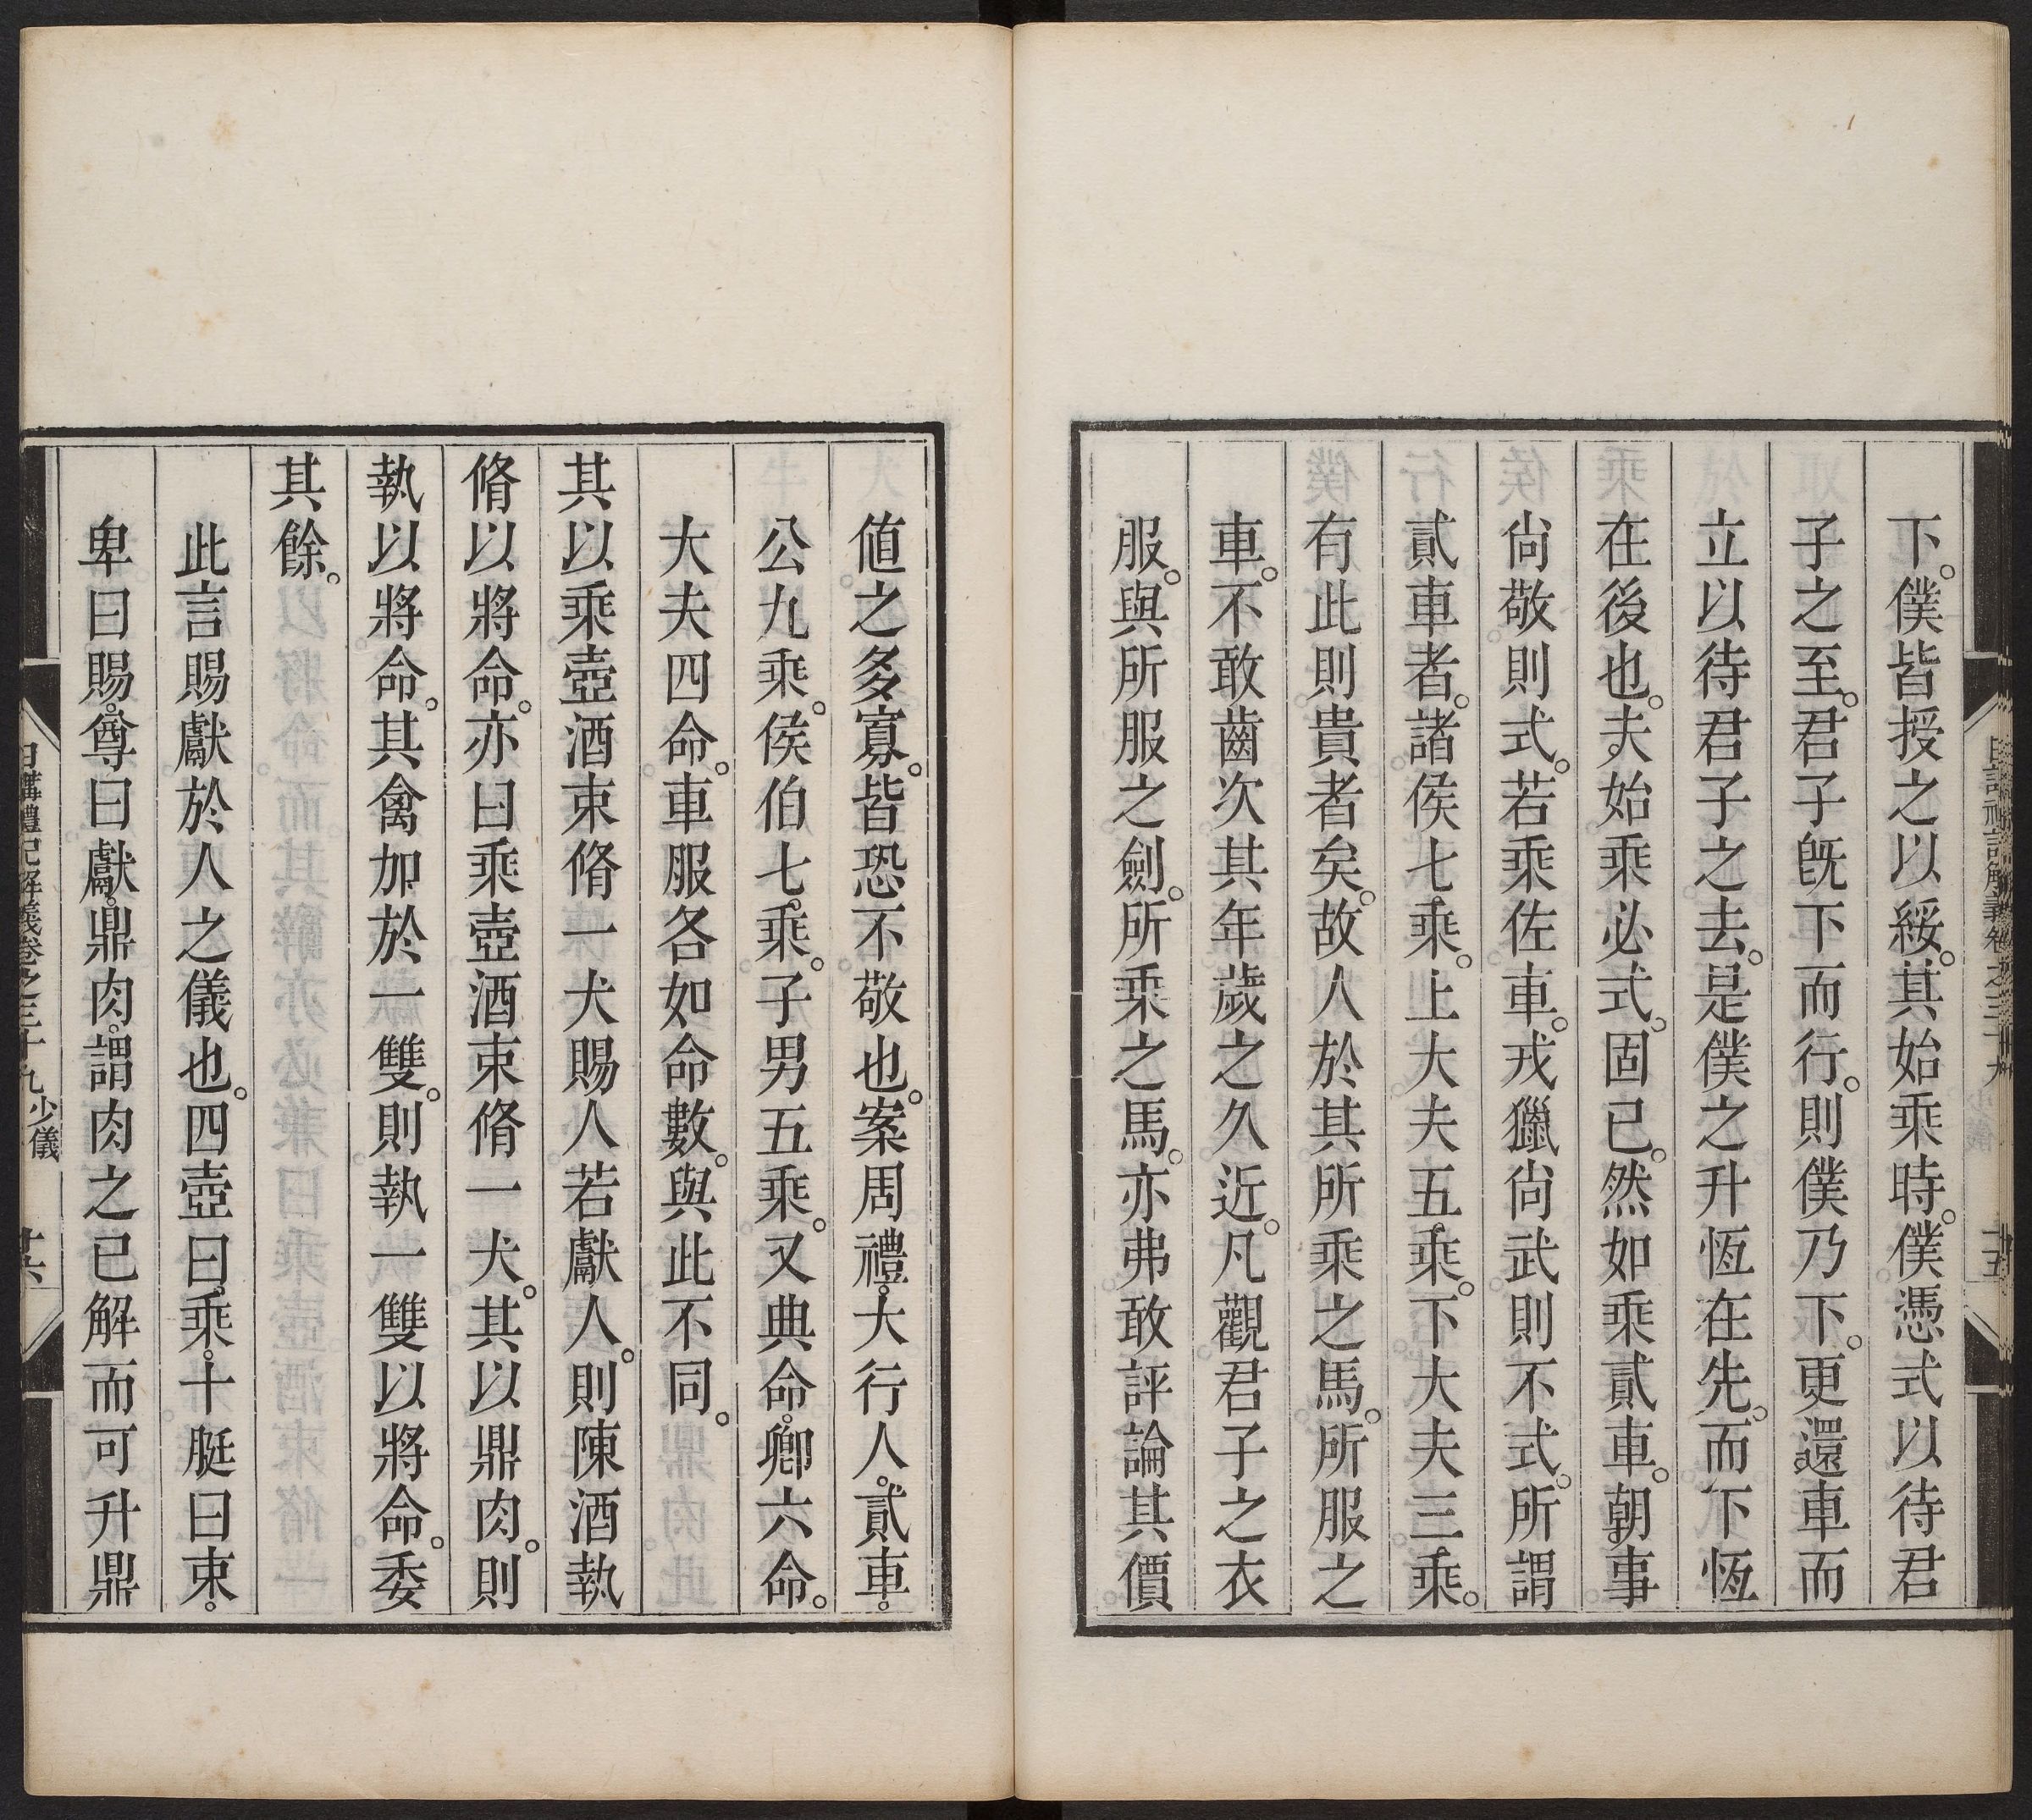 下。僕皆授之以綏。其始乘時。僕憑式以待君
子之至。君子旣下而行。則僕乃下。更還車而
立以待君子之去。是僕之升恆在先。而下恆
在後也。夫始乘必式。固已。然如乘貳車。朝事
尙敬則式。若乘佐車。戎獵尙武則不式。所謂
貳車者。諸侯七乘。上大夫五乘。下大夫三乘。
有此則貴者矣。故人於其所乘之馬。所服之
車。不敢齒次其年歲之久近。凡觀君子之衣
服。與所服之劍。所乘之馬。亦弗敢評論其價
值之多寡。皆恐不敬也。案周禮。大行人。貳車。
公九乘。侯伯七乘。子男五乘。又典命。卿六命。
大夫四命。車服各如命數。與此不同。
其以乘壺酒束脩一犬賜人若獻人。則陳酒執
脩以將命。亦曰乘壺酒束脩一犬。其以鼎肉。則
執以將命。其禽加於一雙。則執一雙以將命。委
其餘。
此言賜獻於人之儀也。四壺曰。乘。十脡曰束。
卑曰賜。尊曰獻。鼎肉。謂肉之已解而可升鼎
日講禮記解義卷之三十九 少儀 十六